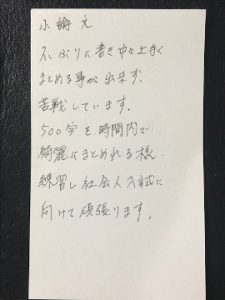 小論文
久しぶりに書き中々上手く
まとめる事が出来ず、
苦戦しています。
500字を時間内で
綺麗にまとめれる様
練習し社会人入試に
向けて頑張ります。